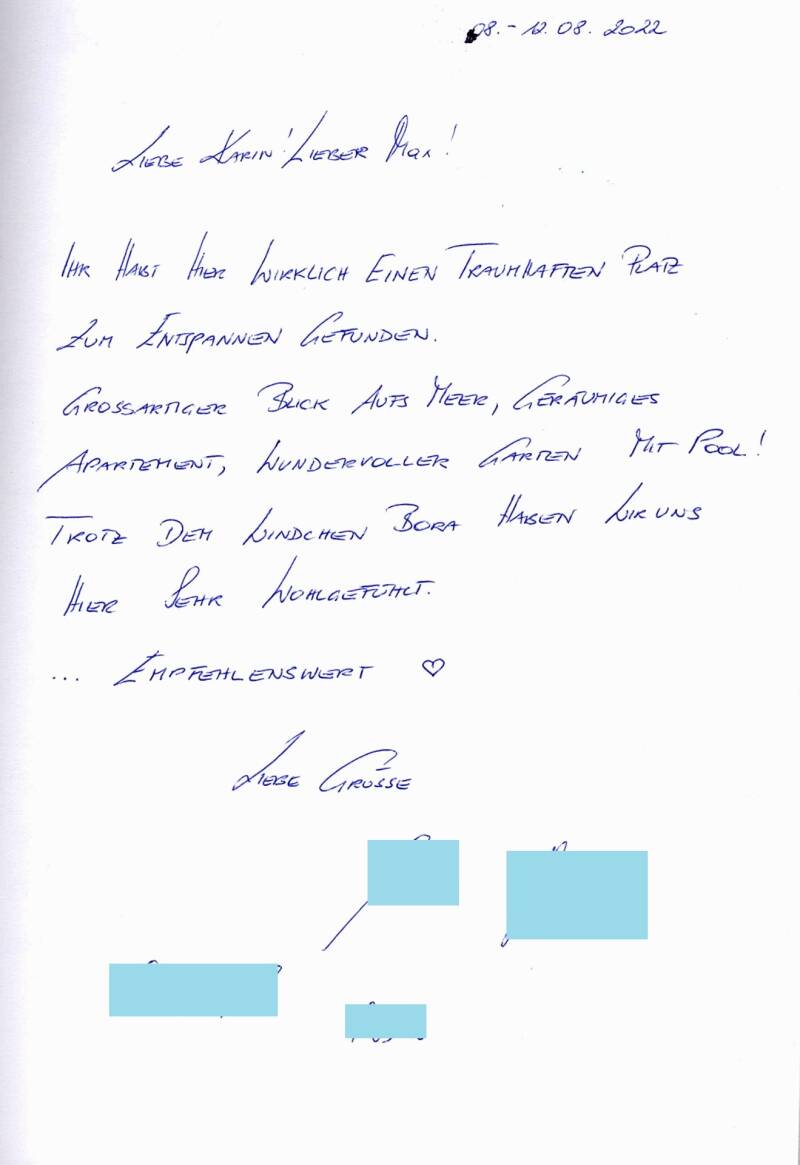 08. - 12. 08. 2022
LIEBE KARIN! LIEBER MAX!
IHR HABT HIER WIRKLICH EINEN TRAUMHAFTEN PLATZ
ZUM ENTSPANNEN GEFUNDEN.
GROSSARTIGER BLICK AUFS MEER, GERÄUMIGES
APARTEMENT, WUNDERVOLLER GARTEN MIT POOL!
TROTZ DEM WINDCHEN BORA HABEN WIR UNS
HIER SEHR WOHLGEFÜHLT.
... EMPFEHLENSWERT ♡
LIEBE GRÜSSE